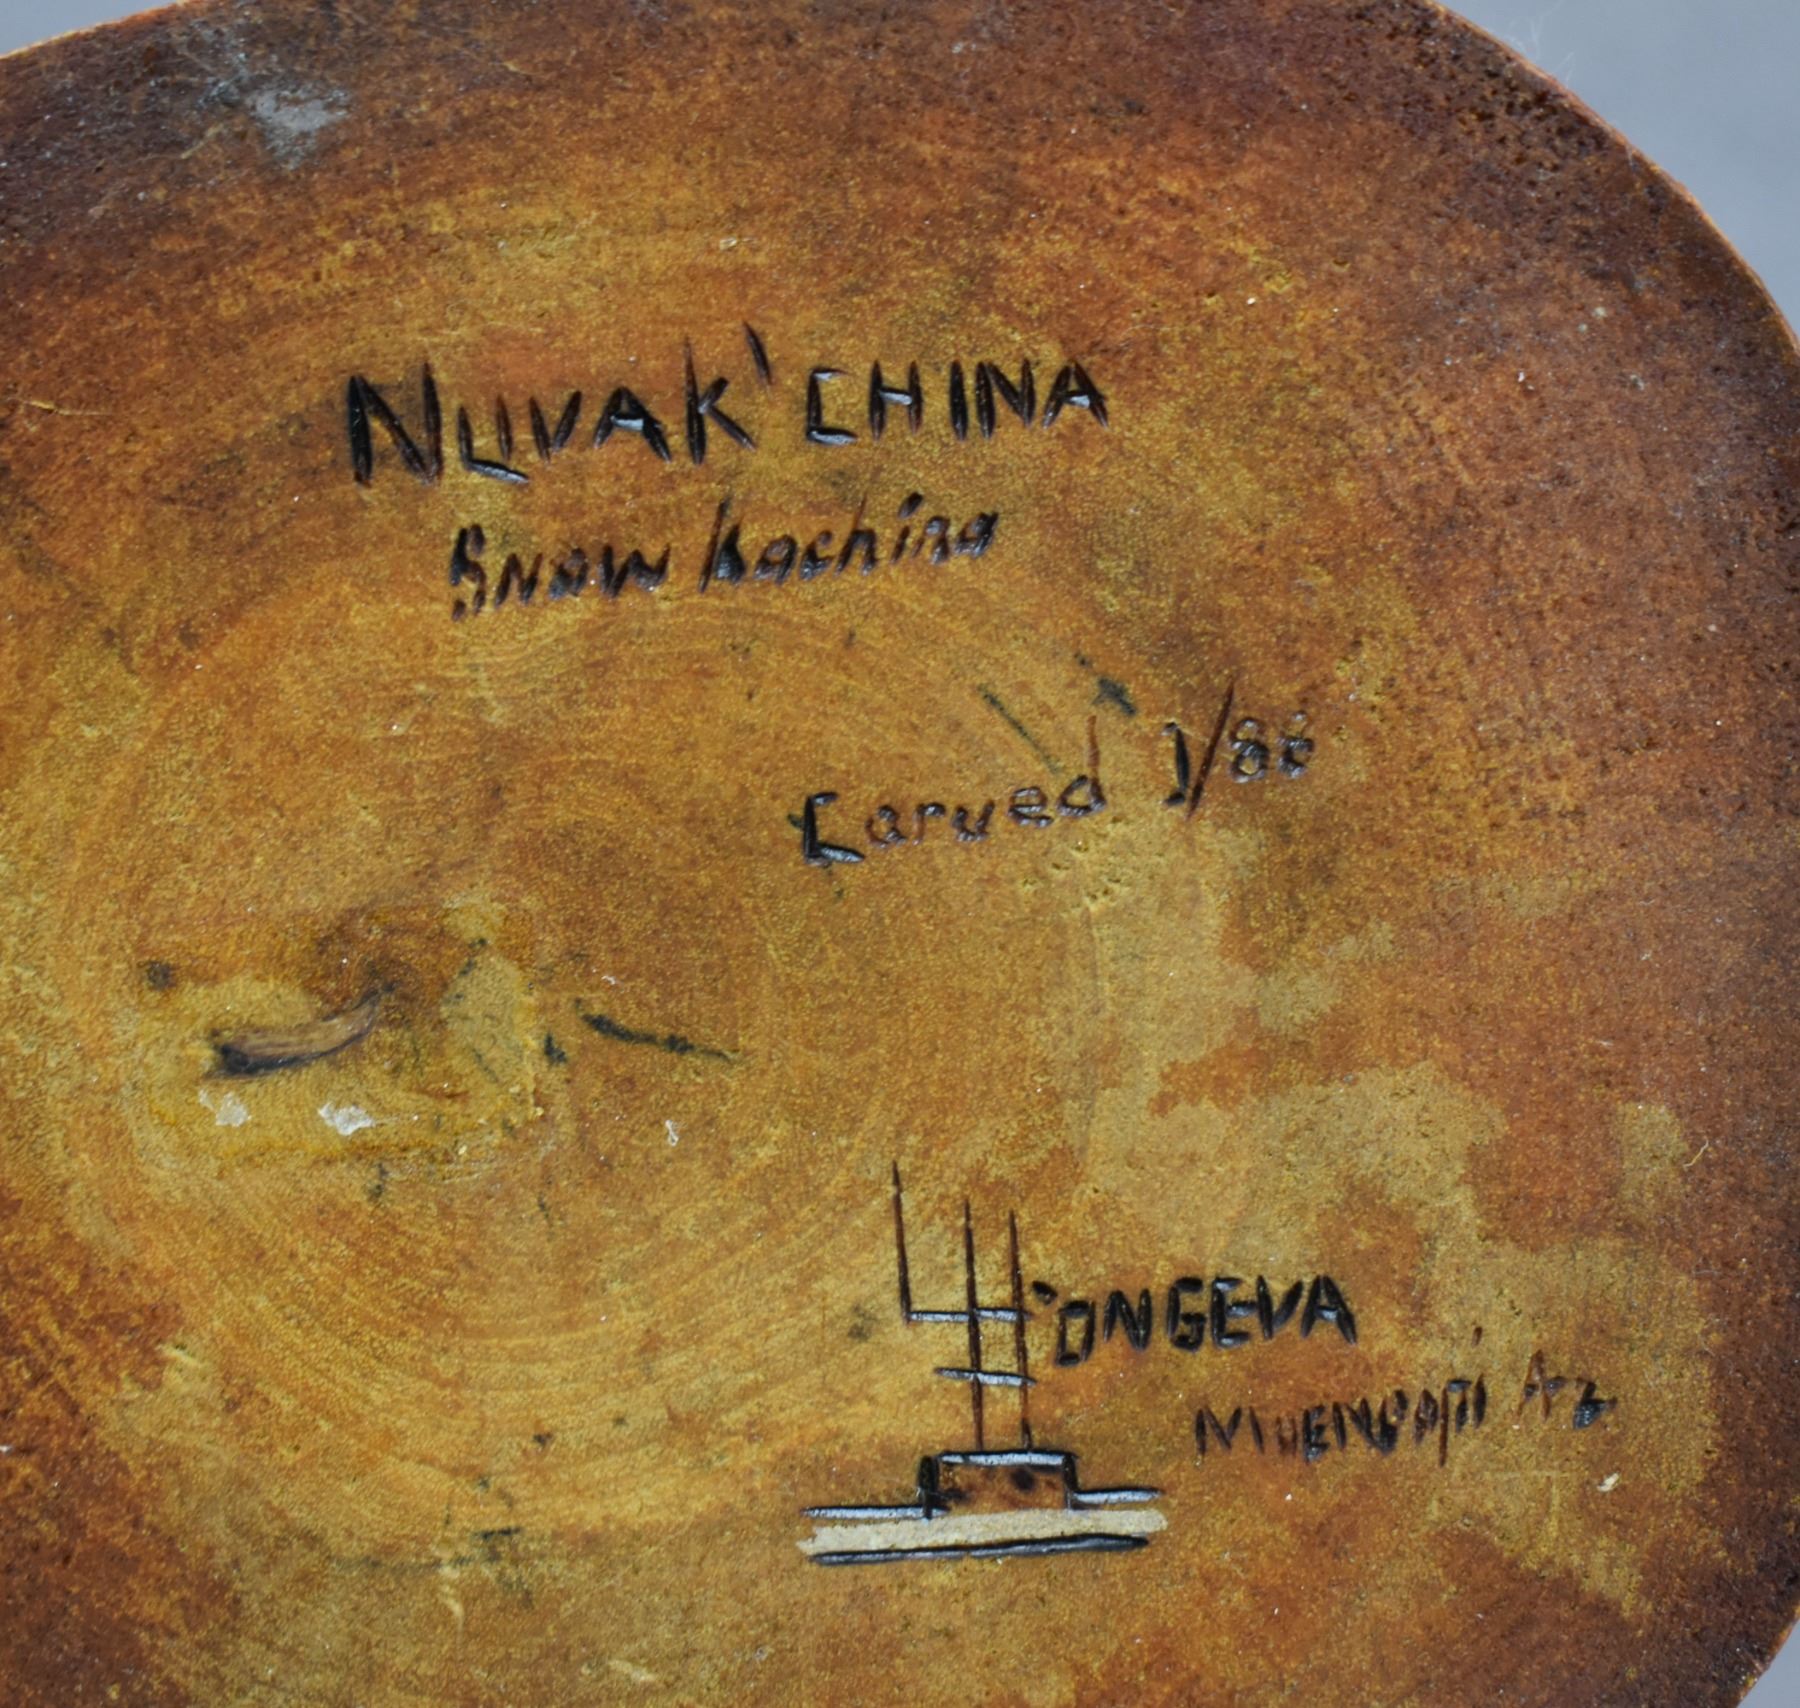 NUVAK'CHINA
Snow kachina
Carved 1/88
H'ONGEVA
MOENCOPI Az